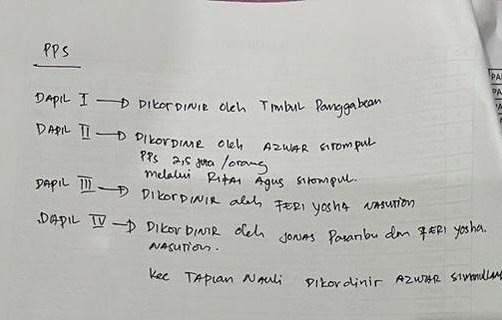 PPS
DAPIL I → DIKORDINIR oleh Timbul Panggabean
DAPIL II → DIKORDINIR oleh AZWAR sitompul
PPS 2,5 juta/orang
melalui Rifai Agus sitompul.
DAPIL III → DIKORDINIR oleh FERI yosha NASUTION
DAPIL IV → DIKORDINIR oleh JONAS Pasaribu dan FERI yosha.
NASUTION.
Kec TAPIAN NAuli Dikordinir AZWAR
PA
PA